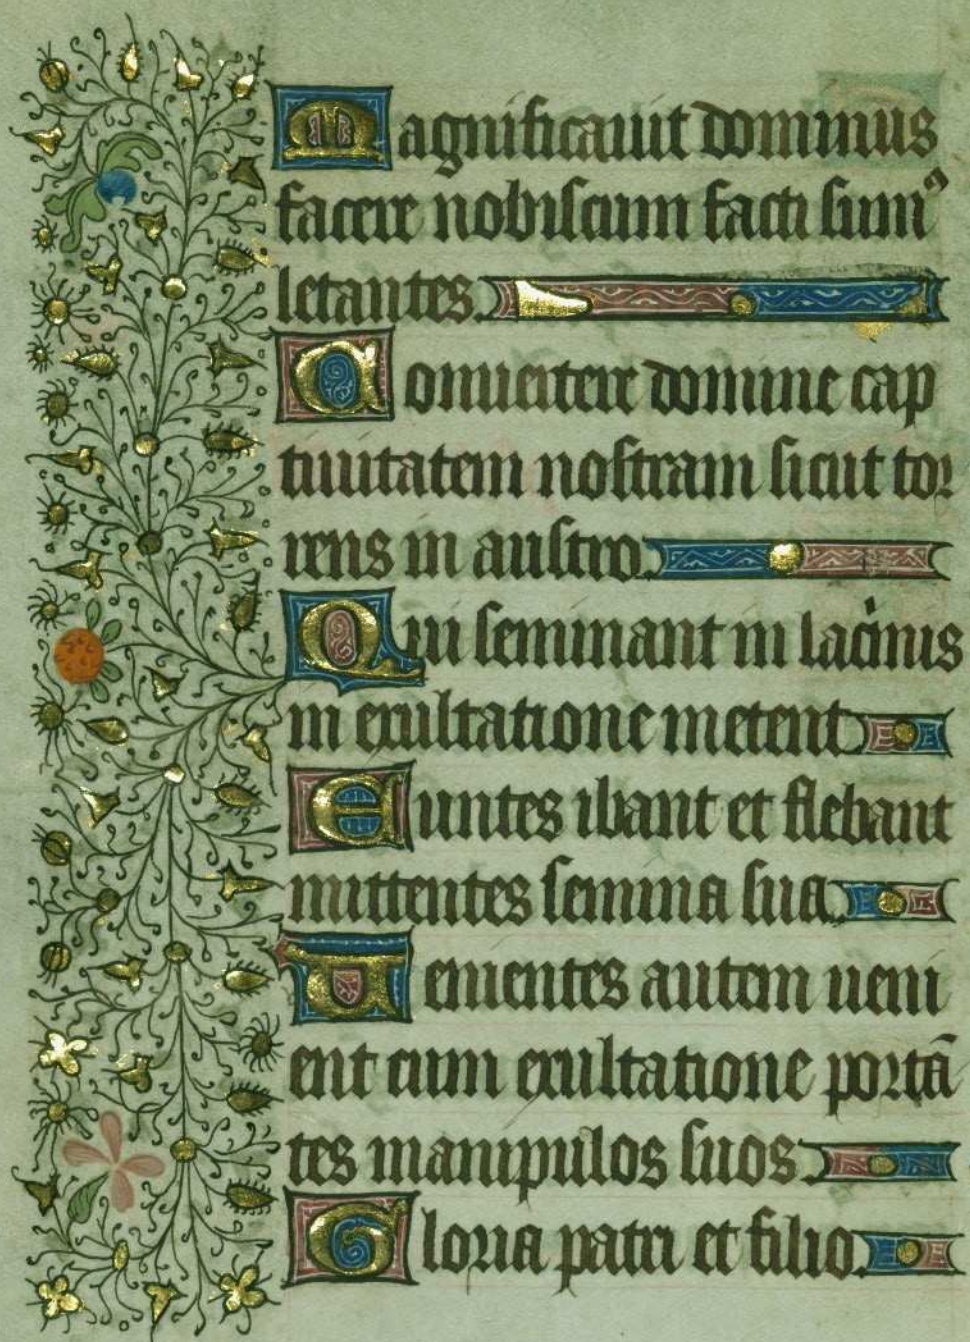 Magnificauit dominus
facere nobiscum facti sumꝰ
letantes.
Conuertere domine cap
tiuitatem nostram sicut tor
rens in austro.
Qui seminant in lacrimis
in exultatione metent.
Euntes ibant et flebant
mittentes semina sua.
Uenientes autem ueni
ent cum exultatione portā
tes manipulos suos.
Gloria patri et filio.